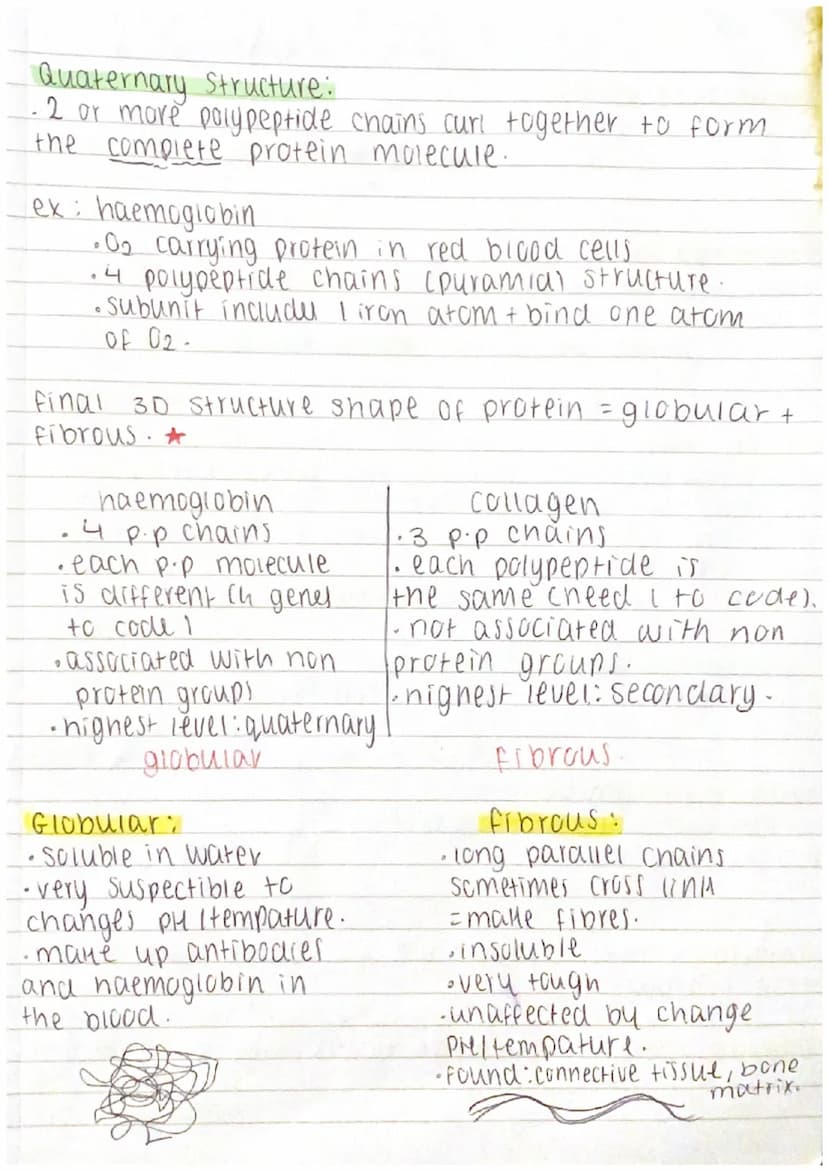 Quaternary Structure:
. 2 or more polypeptide chains curl together to form
the complete protein molecule.
ex: haemoglobin
• O2 carrying protein in red blood cells
• 4 polypeptide chains (puramid) structure.
• subunit include 1 iron atom + bind one atom
of O2.
final 3D structure shape of protein = globular +
fibrous. ★
haemoglobin
• 4 p.p chains
• each p.p molecule
is different (4 genes
to code)
• associated with non
protein groups
• highest level: quaternary
globular
collagen
• 3 p.p chains
• each polypeptide is
the same (need 1 to code).
• not associated with non
protein groups.
• highest level: secondary.
fibrous.
Globular:
• soluble in water
• very suspectible to
changes pH / tempature.
• make up antibodies
and haemoglobin in
the blood.
fibrous:
• long parallel chains
sometimes cross link
= make fibres.
• insoluble
• very tough
• unaffected by change
PH/tempature.
• found: connective tissue, bone
matrix.